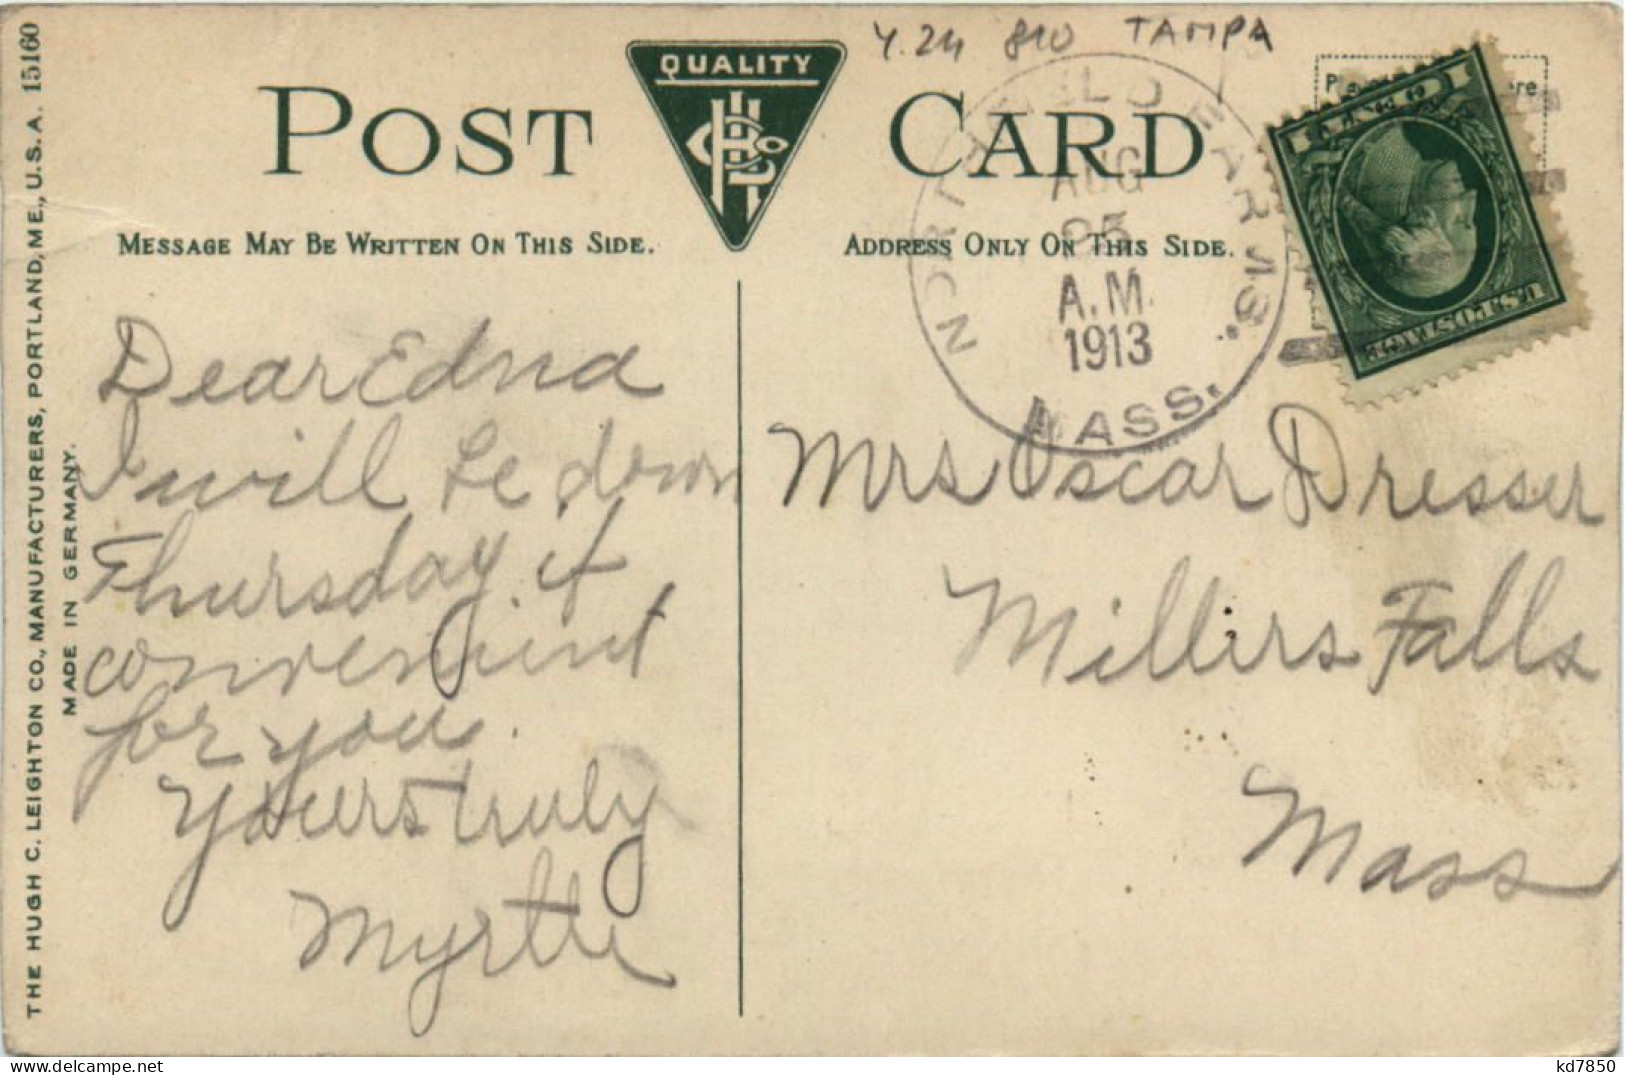 THE HUGH C. LEIGHTON CO., MANUFACTURERS, PORTLAND, ME., U.S.A. 15160
MADE IN GERMANY.
TAMPA
QUALITY
POST CARD
MESSAGE MAY BE WRITTEN ON THIS SIDE.
ADDRESS ONLY ON THIS SIDE.
NORTHFIELD FARMS.
AUG
25
A.M.
1913
MASS.
U.S. POSTAGE
Dear Edna
I will be down
Thursday if
convenient
for you.
Yours truly
Myrtle
Mrs Oscar Dresser
Millers Falls
Mass
kd7850